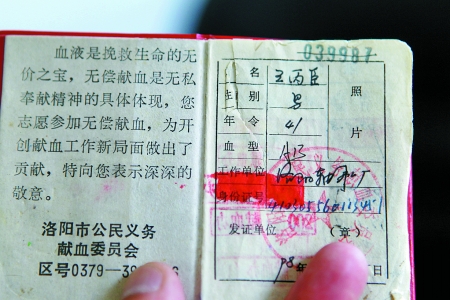 血液是挽救生命的无
价之宝，无偿献血是无私
奉献精神的具体体现，您
志愿参加无偿献血，为开
创献血工作新局面做出了
贡献，特向您表示深深的
敬意。
洛阳市公民义务
献血委员会
区号0379—39
039987
名 王丙臣 照
性别 男
年令 41 片
血型
工作单位
身份证号
发证单位 （章）
98年 日